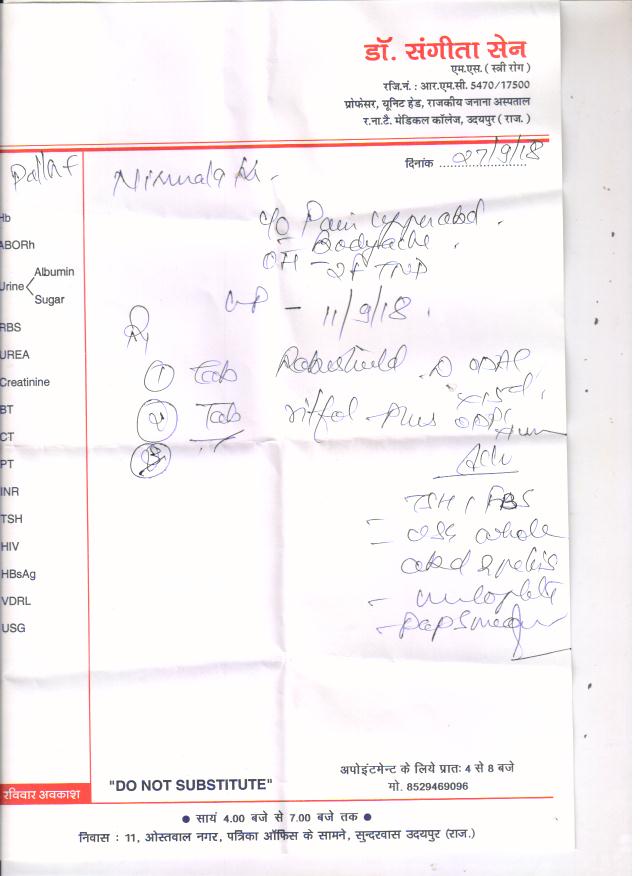 डॉ. संगीता सेन
एम.एस. ( स्त्री रोग )
रजि.नं. : आर.एम.सी. 5470/17500
प्रोफेसर, यूनिट हेड, राजकीय जनाना अस्पताल
र.ना.टै. मेडिकल कॉलेज, उदयपुर ( राज. )
दिनांक 27/9/18
Pallaf
c/o Pain
Bodyache
OH
- 11/9/18.
① Tab D
② Tab Plus
③
Adv
TSH / FBS
- USG whole
abd & pelvis
- Pap Smear
Hb
ABORh
Urine
Albumin
Sugar
RBS
UREA
Creatinine
BT
CT
PT
INR
TSH
HIV
HBsAg
VDRL
USG
रविवार अवकाश
"DO NOT SUBSTITUTE"
अपोइंटमेन्ट के लिये प्रातः 4 से 8 बजे
मो. 8529469096
● सायं 4.00 बजे से 7.00 बजे तक ●
निवास : 11, ओस्तवाल नगर, पत्रिका ऑफिस के सामने, सुन्दरवास उदयपुर (राज.)